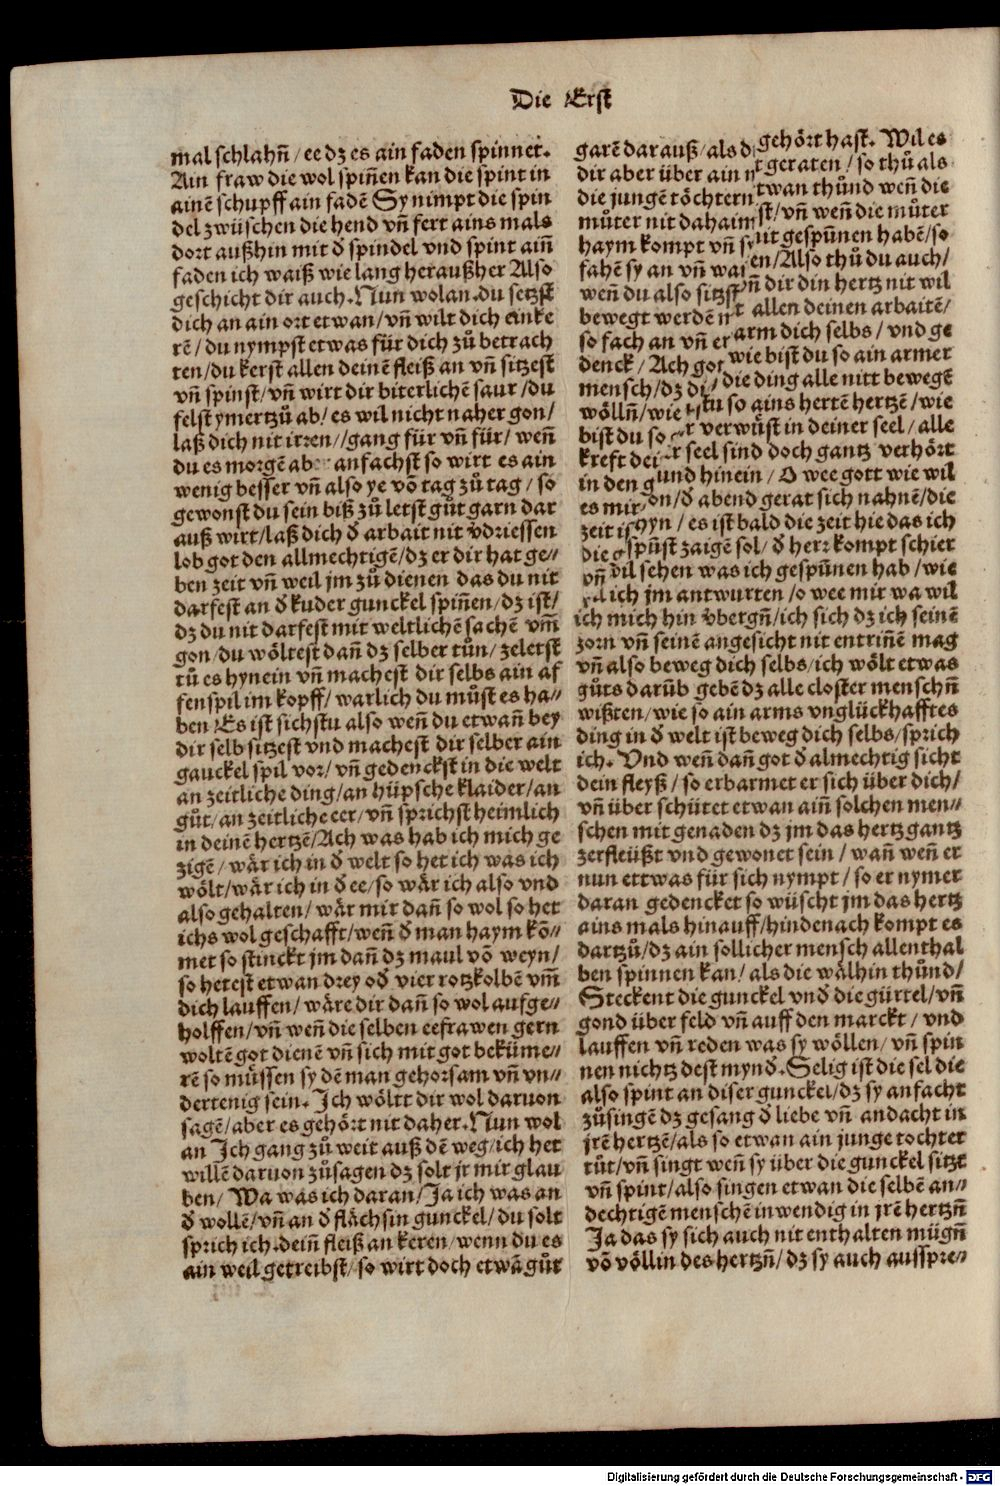 Die Erst
mal schlahn̄ / ee dz es ain faden spinnet.
Ain fraw die wol spin̄en kan die spint in
ainē schupff ain fadē Sy nimpt die spin
del zwüschen die hend vn̄ fert ains mals
dort außhin mit d̕ spindel vnd spint ain̄
faden ich waiß wie lang heraußher Also
geschicht dir auch. Nun wolan. du setzst
dich an ain ort etwan / vn̄ wilt dich einke
rē / du nympst etwas für dich zů betrach
ten / du kerst allen deinē fleiß an vn̄ sitzest
vn̄ spinst / vn̄ wirt dir biterlichē saur / du
felst ymertzů ab / es wil nicht naher gon /
laß dich nit irren / / gang für vn̄ für / wen̄
du es morgē ab anfachst so wirt es ain
wenig besser vn̄ also ye vō tag zů tag / so
gewonst du sein biß zů letst gůt garn dar
auß wirt / laß dich d̕ arbait nit v̕driessen
lob got den allmechtigē / dz er dir hat ge⸗
ben zeit vn̄ weil jm zů dienen das du nit
darfest an d̕ kuder gunckel spin̄en / dz ist /
dz du nit darfest mit weltlichē sachē vm̄
gon / du wöltest dan̄ dz selber tůn / zeletst
tů es hynein vn̄ machest dir selbs ain af
fenspil im kopff / warlich du můst es ha⸗
ben Es ist sichstu also wen̄ du etwan̄ bey
dir selb sitzest vnd machest dir selber ain
gauckel spil vor / vn̄ gedenckst in die welt
an zeitliche ding / an hüpsche klaider / an
gůt / an zeitliche eer / vn̄ sprichst heimlich
in deinē hertzē / Ach was hab ich mich ge
zigē / wär ich in d̕ welt so het ich was ich
wölt / wär ich in d̕ ee / so wär ich also vnd
also gehalten / wär mir dan̄ so wol so het
ichs wol geschafft / wen̄ d̕ man haym kō⸗
met so stinckt jm dan̄ dz maul vō weyn /
so hetest etwan drey od̕ vier rotzkolbē vm̄
dich lauffen / wäre dir dan̄ so wol aufge⸗
holffen / vn̄ wen̄ die selben eefrawen gern
woltē got dienē vn̄ sich mit got beküme⸗
rē so müssen sy dē man gehorsam vn̄ vn⸗
dertenig sein. Ich wöltt dir wol daruon
sagē / aber es gehört nit daher. Nun wol
an Ich gang zů weit auß dē weg / ich het
willē daruon zůsagen dz solt jr mir glau
ben / Wa was ich daran / Ja ich was an
d̕ wollē / vn̄ an d̕ flächsin gunckel / du solt
sprich ich. dein̄ fleiß an keren / wenn du es
ain weil getreibst / so wirt doch etwā gůt
garē darauß / als d gehört hast. Wil es
dir aber über ain n t geraten / so thů als
die jungē töchtern twan thůnd wen̄ die
můter nit dahaim st / vn̄ wen̄ die můter
haym kompt vn̄ sy nit gespūnen habē / so
fahē sy an vn̄ wai en / Also thů du auch /
wen̄ du also sitzst vn̄ dir din hertz nit wil
bewegt werdē n t allen deinen arbaitē /
so fach an vn̄ er arm dich selbs / vnd ge
denck / Ach got wie bist du so ain armer
mensch / dz di die ding alle nitt bewegē
wölln̄ / wie stu so ains hertē hertzē / wie
bist du so r verwüst in deiner seel / alle
kreft dei r seel sind doch gantz verhört
in den g und hinein / O wee gott wie wil
es mir on / d̕ abend gerat sich nahnē / die
zeit is hyn / es ist bald die zeit hie das ich
die gspūst zaigē sol / d̕ herr kompt schier
vn̄ wil sehen was ich gespūnen hab / wie
wil ich jm antwurten / o wee mir wa wil
ich mich hin v̕bergn̄ / ich sich dz ich seinē
zorn vn̄ seinē angesicht nit entrin̄ē mag
vn̄ also beweg dich selbs / ich wölt etwas
gůts darūb gebē dz alle closter menschn̄
wißten / wie so ain arms vnglückhafftes
ding in d̕ welt ist beweg dich selbs / sprich
ich. Vnd wen̄ dan̄ got d̕ almechtig sicht
dein fleyß / so erbarmet er sich über dich /
vn̄ über schütet etwan ain̄ solchen men⸗
schen mit genaden dz jm das hertz gantz
zerfleüßt vnd gewonet sein / wan̄ wen̄ er
nun ettwas für sich nympt / so er nymer
daran gedencket so wüscht jm das hertz
ains mals hinauff / hindenach kompt es
dartzů / dz ain sollicher mensch allenthal
ben spinnen kan / als die wälhin thůnd /
Steckent die gunckel vnd̕ die gürtel / vn̄
gond über feld vn̄ auff den marckt / vnd
lauffen vn̄ reden was sy wöllen / vn̄ spin
nen nichtz dest mynd̕. Selig ist die sel die
also spint an diser gunckel / dz sy anfacht
zůsingē dz gesang d̕ liebe vn̄ andacht in
jrē hertzē / als so etwan ain junge tochter
tůt / vn̄ singt wen̄ sy über die gunckel sitzt
vn̄ spint / also singen etwan die selbē an⸗
dechtigē menschē inwendig in jrē hertzn̄
Ja das sy sich auch nit enthalten mügn̄
vō völlin des hertzn̄ / dz sy auch ausspre⸗
Digitalisierung gefördert durch die Deutsche Forschungsgemeinschaft - DFG